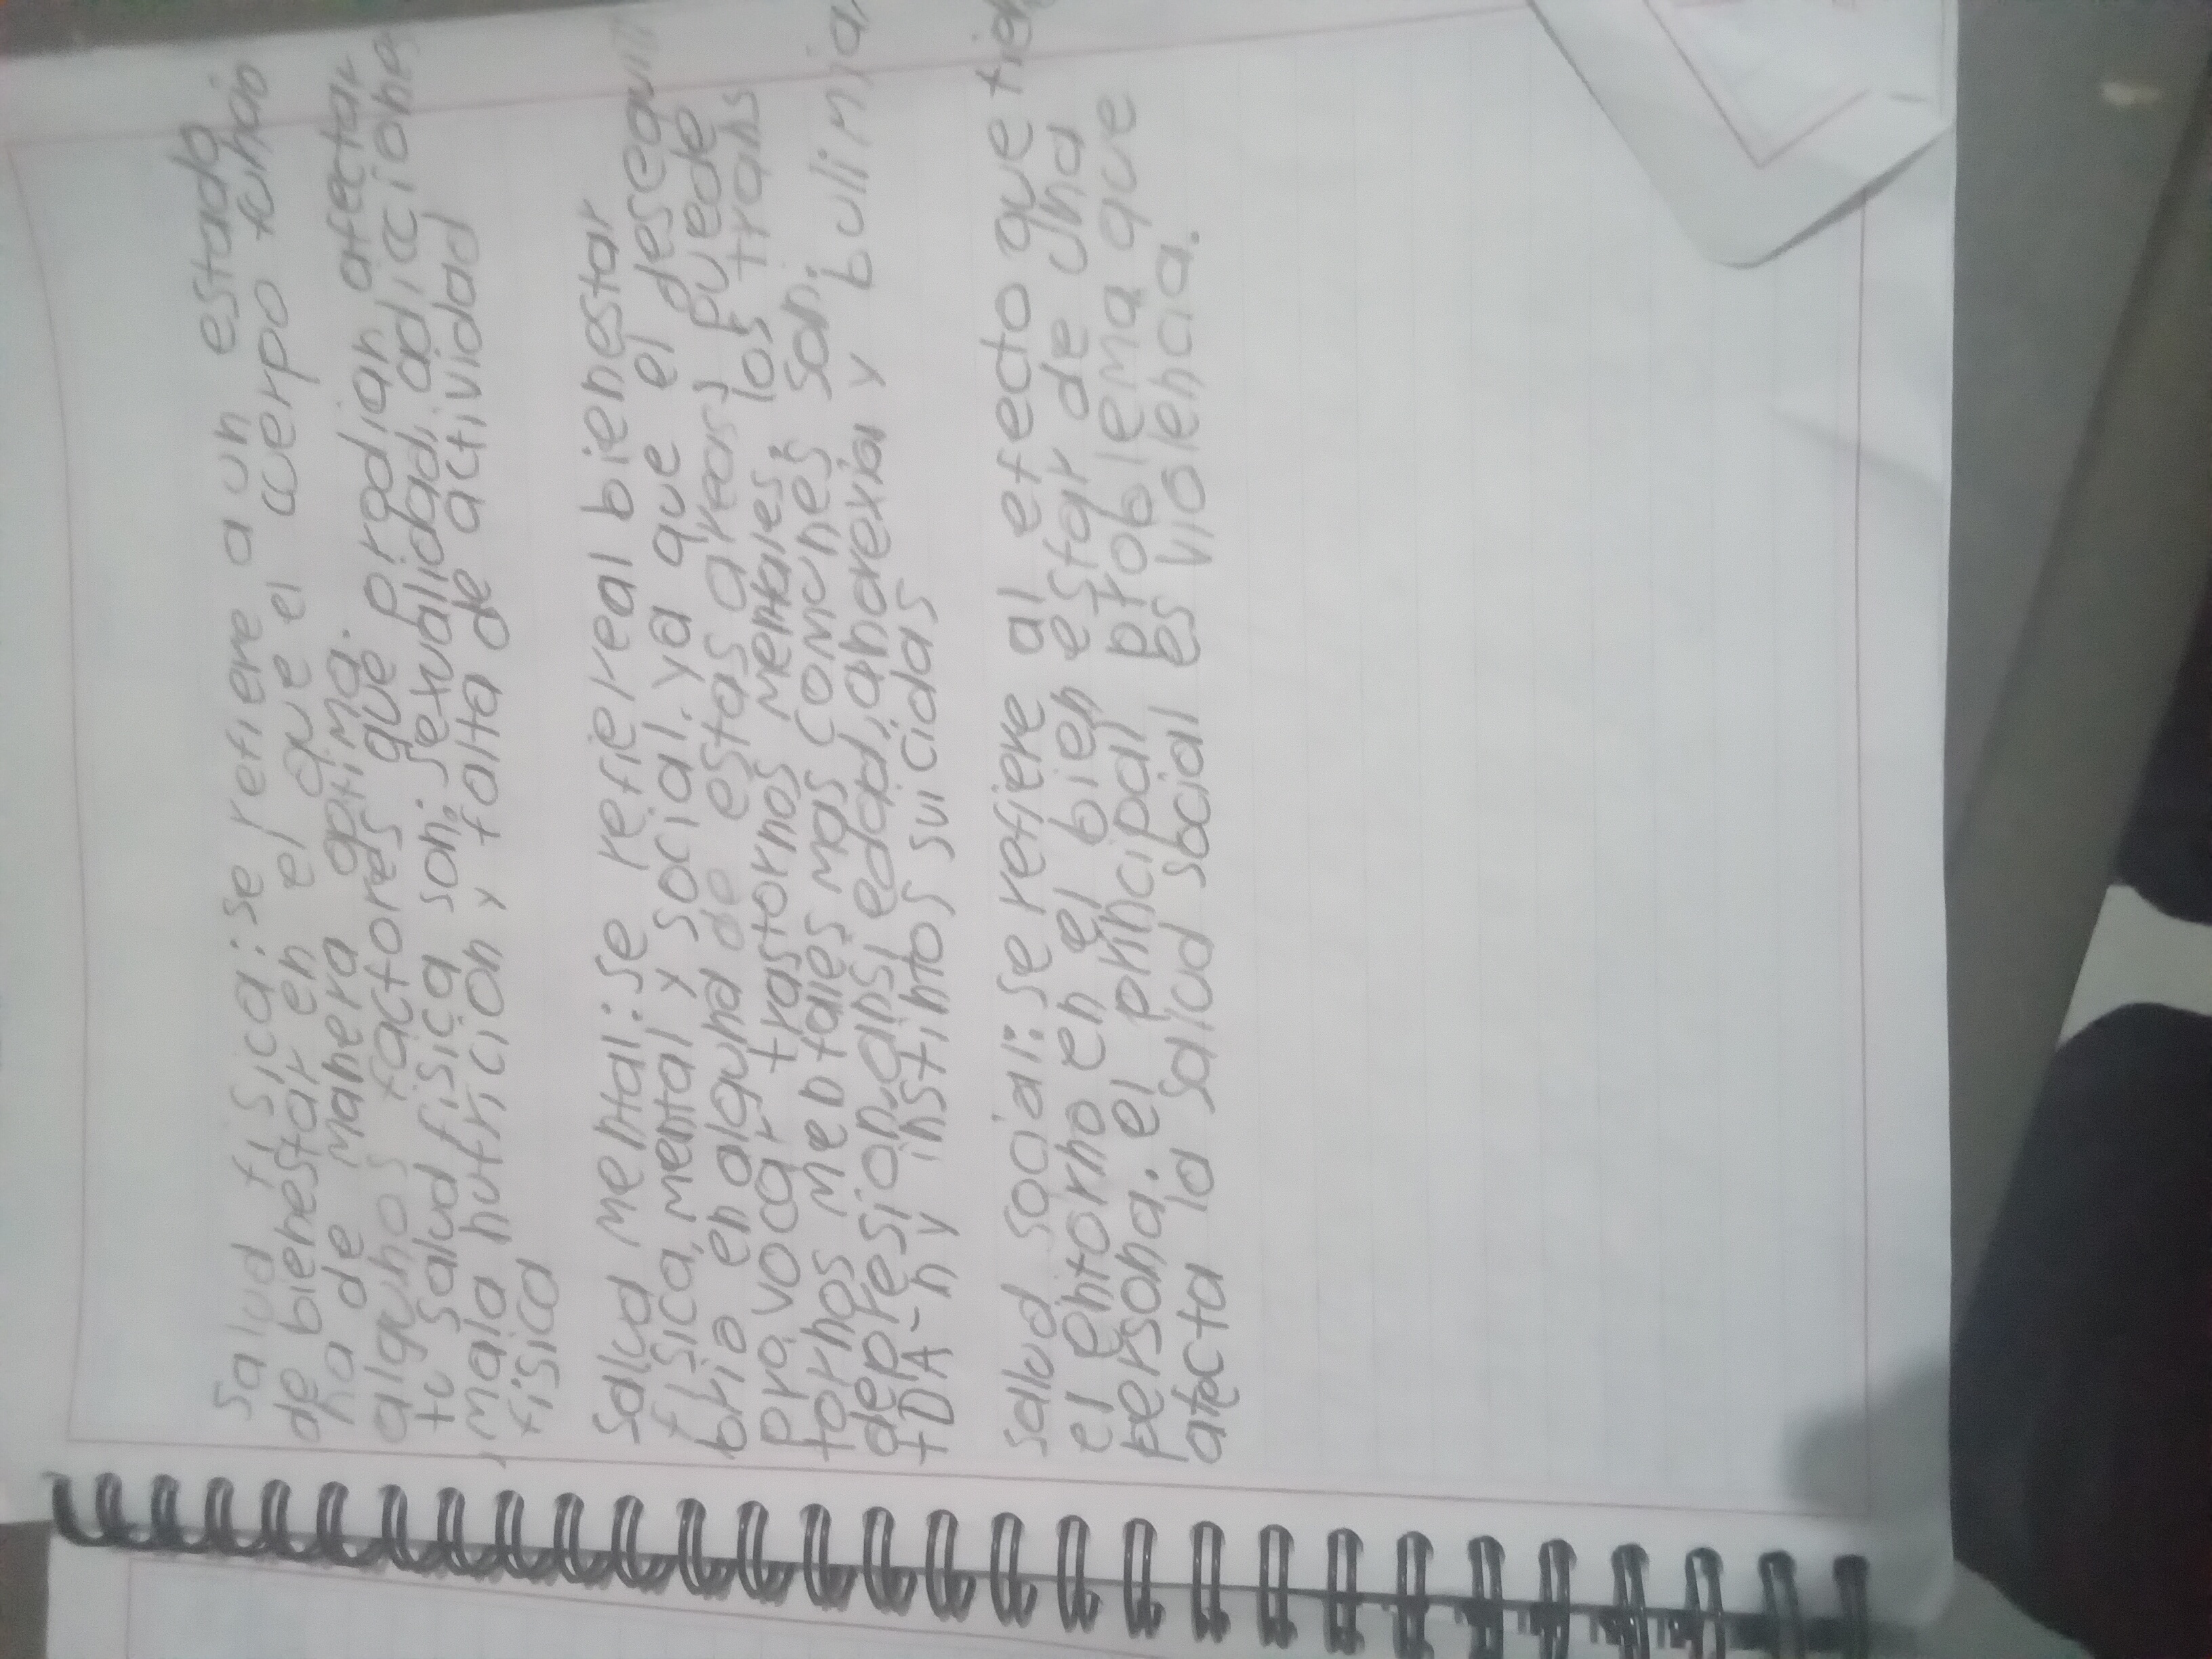 salud fisica: se refiere a un estado
de bienestar en el que el cuerpo funcio
na de manera optima.
algunos factores que prodian afectar
tu salud fisica son: sexualidad, adiccione
mala nutricion y falta de actividad
fisica
salud mental: se refiereal bienestar
fisica, mental y social. ya que el desequil
brio en alguna de estas areas puede
pro.vocar trastornos mentales, los trans
tornos mentales mas comunes son:
depresion, ansiedad, anorexia y bulimia
TDA-h y instintos suicidas
salud social: se refiere al efecto que tien
el entorno en el bien estar de una
persona. el principal problema que
afecta la salud social es violencia.